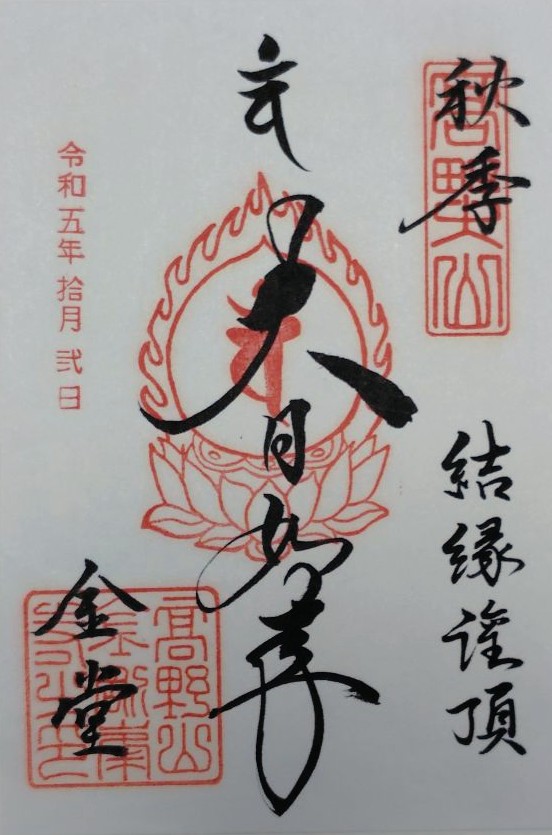 秋季
結縁灌頂
高野山
大日如来
令和五年 拾月 弐日
金堂
高野山
金剛峯